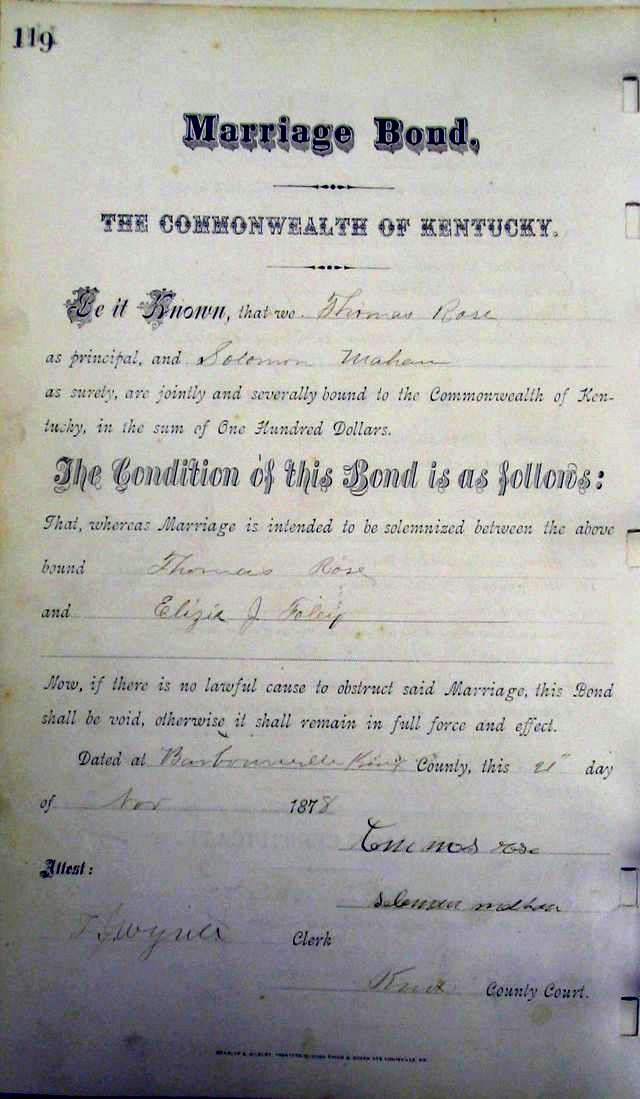 119
Marriage Bond,
THE COMMONWEALTH OF KENTUCKY.
Be it Known, that we Thomas Rose
as principal, and Solomon Mahan
as surety, are jointly and severally bound to the Commonwealth of Ken-
tucky, in the sum of One Hundred Dollars.
The Condition of this Bond is as follows:
That, whereas Marriage is intended to be solemnized between the above
bound Thomas Rose
and Eliza J Foley
Now, if there is no lawful cause to obstruct said Marriage, this Bond
shall be void, otherwise it shall remain in full force and effect.
Dated at Barbourville Knox County, this 21" day
of Nov 1878
Thomas rose
Attest:
solomon mahan
Clerk
Knox County Court.